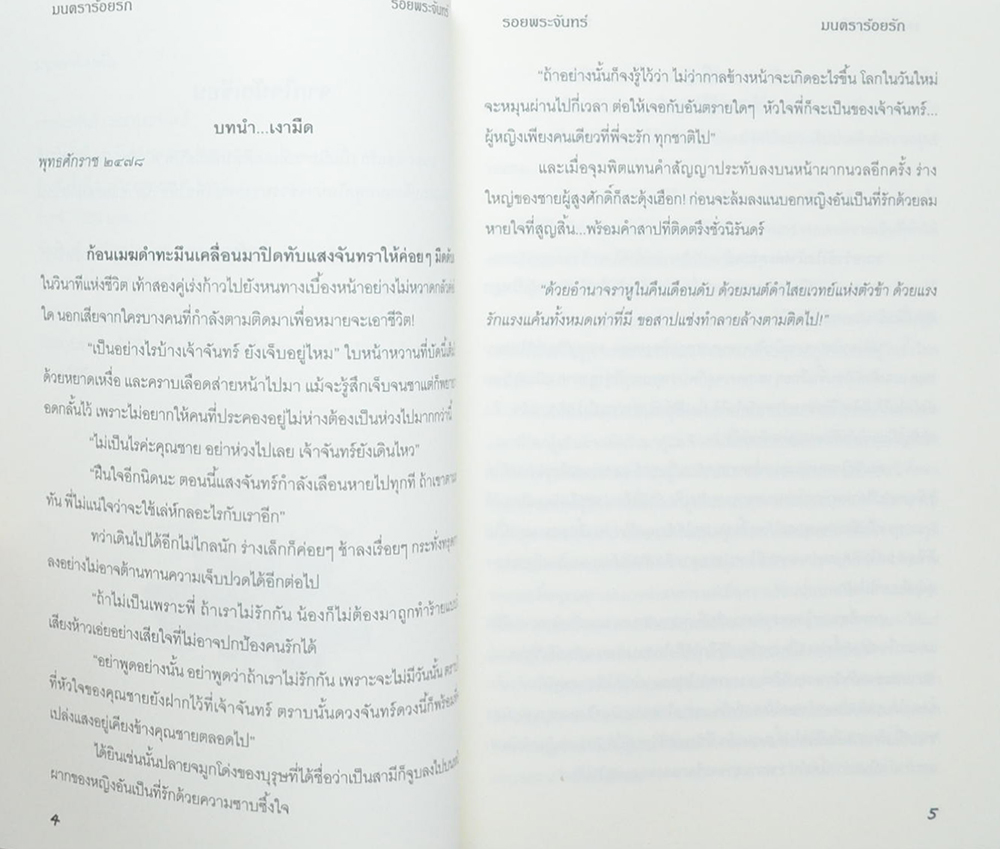 มนตราร้อยรัก
รอยพระจันทร์
บทนำ...เงามืด
พุทธศักราช ๒๔๗๘
ก้อนเมฆดำทะมึนเคลื่อนมาปิดทับแสงจันทราให้ค่อยๆ มืดดับ
ในวินาทีแห่งชีวิต เท้าสองคู่เร่งก้าวไปยังหนทางเบื้องหน้าอย่างไม่หวาดกลัวต่อ
ใด นอกเสียจากใครบางคนที่กำลังตามติดมาเพื่อหมายจะเอาชีวิต!
“เป็นอย่างไรบ้างเจ้าจันทร์ ยังเจ็บอยู่ไหม” ใบหน้าหวานที่บัดนี้
ด้วยหยาดเหงื่อ และคราบเลือดส่ายหน้าไปมา แม้จะรู้สึกเจ็บจนชาแต่ก็
อดกลั้นไว้ เพราะไม่อยากให้คนที่ประคองอยู่ไม่ห่างต้องเป็นห่วงไปมากกว่านี้
“ไม่เป็นไรค่ะคุณชาย อย่าห่วงไปเลย เจ้าจันทร์ยังเดินไหว”
“ฝืนใจอีกนิดนะ ตอนนี้แสงจันทร์กำลังเลือนหายไปทุกที ถ้าเขาตาม
ทัน พี่ไม่แน่ใจว่าจะใช้เล่ห์กลอะไรกับเราอีก”
ทว่าเดินไปได้อีกไม่ไกลนัก ร่างเล็กก็ค่อยๆ ช้าลงเรื่อยๆ กระทั่งทรุด
ลงอย่างไม่อาจต้านทานความเจ็บปวดได้อีกต่อไป
“ถ้าไม่เป็นเพราะพี่ ถ้าเราไม่รักกัน น้องก็ไม่ต้องมาถูกทำร้าย
เสียงห้าวเอ่ยอย่างเสียใจที่ไม่อาจปกป้องคนรักได้
“อย่าพูดอย่างนั้น อย่าพูดว่าถ้าเราไม่รักกัน เพราะจะไม่มีวันนั้น
ที่หัวใจของคุณชายยังฝากไว้ที่เจ้าจันทร์ ตราบนั้นดวงจันทร์ดวงนี้ก็พร้อม
เปล่งแสงอยู่เคียงข้างคุณชายตลอดไป”
ได้ยินเช่นนั้นปลายจมูกโด่งของบุรุษที่ได้ชื่อว่าเป็นสามีก็จูบลงไปบน
ผากของหญิงอันเป็นที่รักด้วยความซาบซึ้งใจ
4
รอยพระจันทร์
มนตราร้อยรัก
“ถ้าอย่างนั้นก็จงรู้ไว้ว่า ไม่ว่ากาลข้างหน้าจะเกิดอะไรขึ้น โลกในวันใหม่
จะหมุนผ่านไปกี่เวลา ต่อให้เจอกับอันตรายใดๆ หัวใจพี่ก็จะเป็นของเจ้าจันทร์...
ผู้หญิงเพียงคนเดียวที่พี่จะรัก ทุกชาติไป”
และเมื่อจุมพิตแทนคำสัญญาประทับลงบนหน้าผากนวลอีกครั้ง ร่าง
ใหญ่ของชายผู้สูงศักดิ์ก็สะดุ้งเฮือก! ก่อนจะล้มลงแนบอกหญิงอันเป็นที่รักด้วยลม
หายใจที่สูญสิ้น...พร้อมคำสาปที่ติดตรึงชั่วนิรันดร์
“ด้วยอำนาจราหูในคืนเดือนดับ ด้วยมนต์ดำไสยเวทย์แห่งตัวข้า ด้วยแรง
รักแรงแค้นทั้งหมดเท่าที่มี ขอสาปแช่งทำลายล้างตามติดไป!”
5